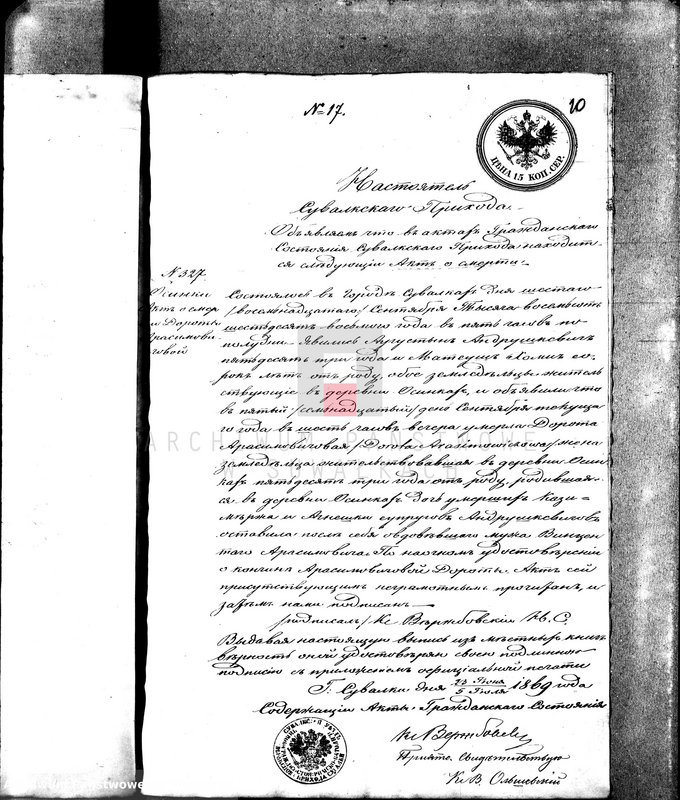 № 17.
10
ЦѢНА 15 КОП. СЕР.
Настоятель
Сувалкскаго Прихода.
Объявляемъ что въ актахъ Гражданскаго
Состоянія Сувалкскаго Прихода находит-
ся слѣдующій Актъ о смерти:
№ 327
Осинки
Актъ о смер
ти Дороты
Арасимови
човой
Состоялось въ городѣ Сувалкахъ дня шестаго
/восемнадцатаго/ Сентября Тысяча восемьсотъ
шестьдесятъ восьмаго года въ пять часовъ по
полудни. Явились Аугустынъ Андрушкевичъ
пятьдесятъ три года и Матеушъ Хомичъ со-
рокъ лѣтъ отъ роду, обое земледѣльцы житель
ствующіе въ деревни Осинкахъ, и объявили что
въ пятый /семнадцатый/ день Сентября текуща
го года въ шесть часовъ вечера умерла Дорота
Арасимовичовая /Dorota Arasimowiczowa/ жена
земледѣльца жительствовавшая въ деревни Осин
кахъ пятьдесятъ три года отъ роду, родившая-
ся въ деревни Осинкахъ дочь умершихъ Кази-
мѣржа и Агнешки супруговъ Андрушкевичовъ
оставила послѣ себя овдовѣвшаго мужа Винцен
таго Арасимовича. По наочномъ удостовѣреніи
о кончинѣ Арасимовичовой Дороты, Актъ сей
присутствующимъ неграмотнымъ прочитанъ, и
затѣмъ нами подписанъ
/подписалъ/ Кс. Вѣржбовскій Н. С.
Выдавая настоящую выпись изъ мѣстныхъ книгъ
вѣрность оной удостовѣряю своею подлинною
подписью съ приложеніемъ оффиціальной печати
Г. Сувалки дня 23 Іюня / 5 Іюля 1869 года
Содержащій Акты Гражданскаго Состоянія
Кс Вержбовскі
Свидѣтельствую
Кс В. Ольшевскій
ARCHIWUM PAŃSTWOWE
W SUWAŁKACH